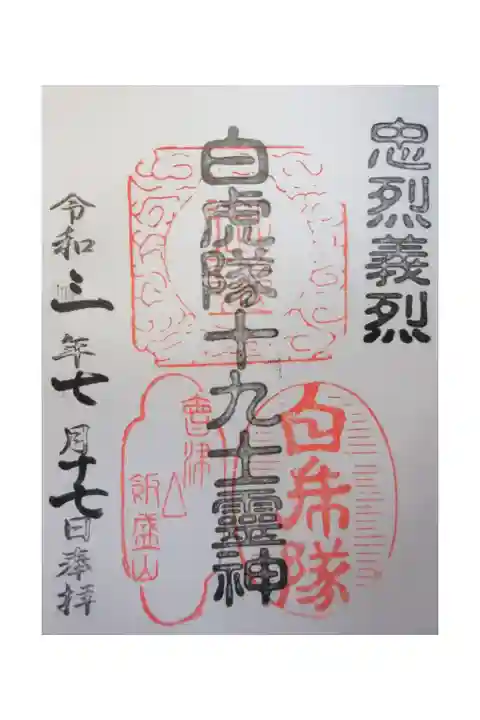 忠烈義烈
白虎隊十九士靈神
白虎隊
會津
飯盛山
令和三年七月十七日奉拝